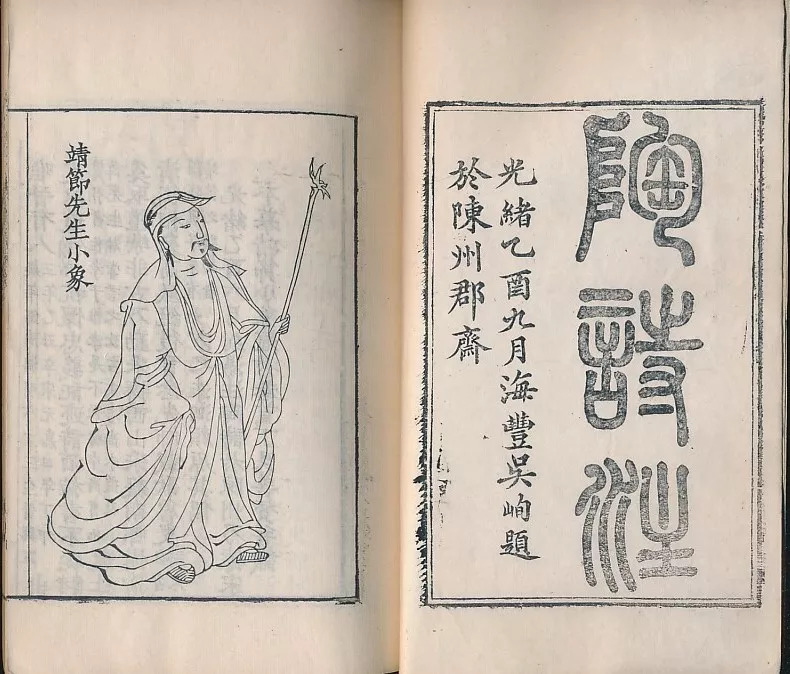 陶詩注
光緒乙酉九月海豐吳峋題
於陳州郡齋
靖節先生小象